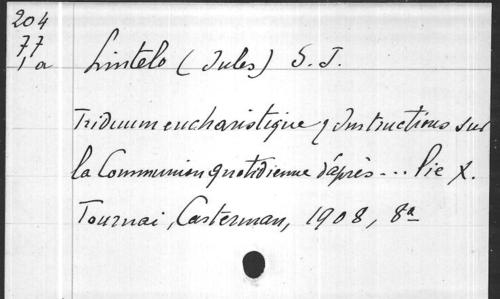 204
77
1a
Lintelo (Jules) S. J.
Triduum eucharistique, Instructions sur
la Communion quotidienne d'après... Pie X.
Tournai, Casterman, 1908, 8ª